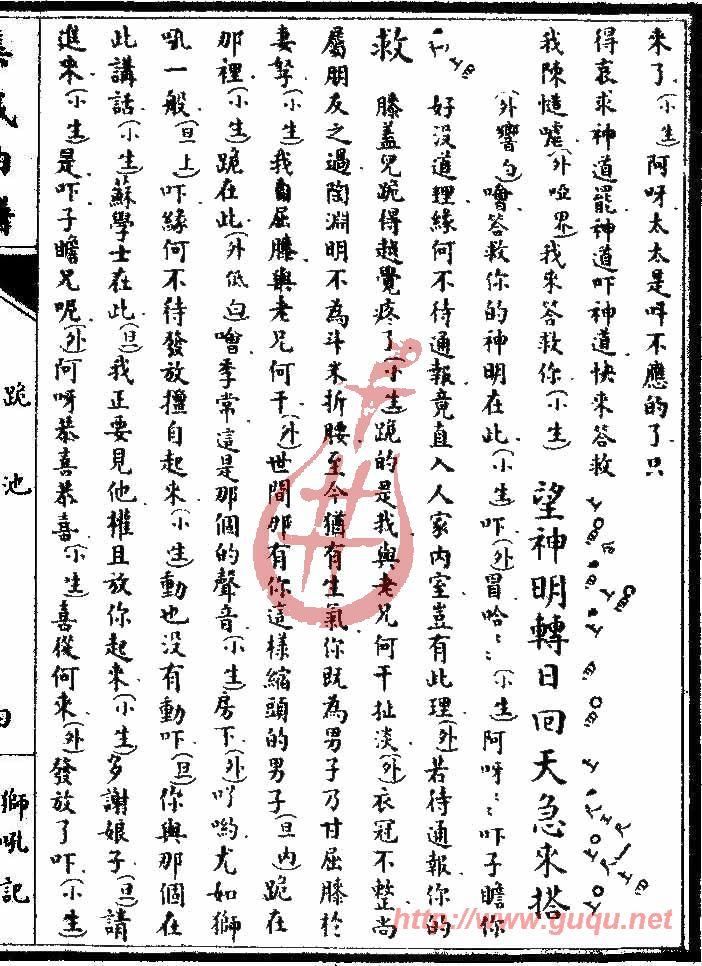 來了(小生)阿呀太太是叫不應的了只
得哀求神道罷神道吓神道快來荅救
我陳慥嘘(外啞界)我來荅救你(小生)望神明轉日回天急來搭
(外響白)噲荅救你的神明在此(小生)吓(外)冒哈〻(小生)阿呀〻吓子瞻你
好没道理緣何不待通報竟直入人家内室豈有此理(外)若待通報你的
救膝蓋兒跪得越覺疼了(小生)跪的是我與老兄何干扯淡(外)衣冠不整尚
屬朋友之過陶淵明不為斗米折腰至今猶有生氣你既為男子乃甘屈膝於
妻孥(小生)我自屈膝與老兄何干(外)世間那有你這樣縮頭的男子(旦内)跪在
那裡(小生)跪在此(外低白)噲季常這是那個的聲音(小生)房下(外)吖喲尤如獅
吼一般(旦上)吓緣何不待發放擅自起來(小生)動也没有動吓(旦)你與那個在
此講話(小生)蘇學士在此(旦)我正要見他權且放你起來(小生)多謝娘子(旦)請
進來(小生)是吓子瞻兄呢(外)阿呀恭喜恭喜(小生)喜從何來(外)發放了吓(小生)
跪池
獅吼記
http://www.guqu.net